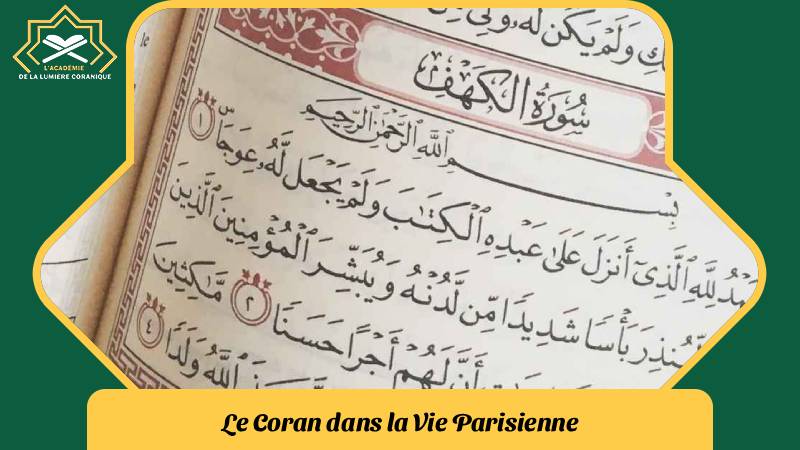 L'ACADÉMIE
DE LA LUMIÈRE CORANIQUE
le
وَلَمْ يَكُن لَّهُۥ وَلِىٌّ
سُورَةُ الكَهْفِ
بِسْمِ ٱللَّهِ ٱلرَّحْمَٰنِ ٱلرَّحِيمِ
لِلَّهِ ٱلَّذِىٓ أَنزَلَ عَلَىٰ عَبْدِهِ ٱلْكِتَٰبَ وَلَمْ يَجْعَل لَّهُۥ عِوَجَاۜ ١
بَأْسًا شَدِيدًا مِّن لَّدُنْهُ وَيُبَشِّرَ ٱلْمُؤْمِنِينَ ٱلَّذِينَ
أَنَّ لَهُمْ أَجْرًا حَسَنًا ٢ مَّٰكِثِينَ
ٱللَّهُ وَلَدًا ٤
Le Coran dans la Vie Parisienne